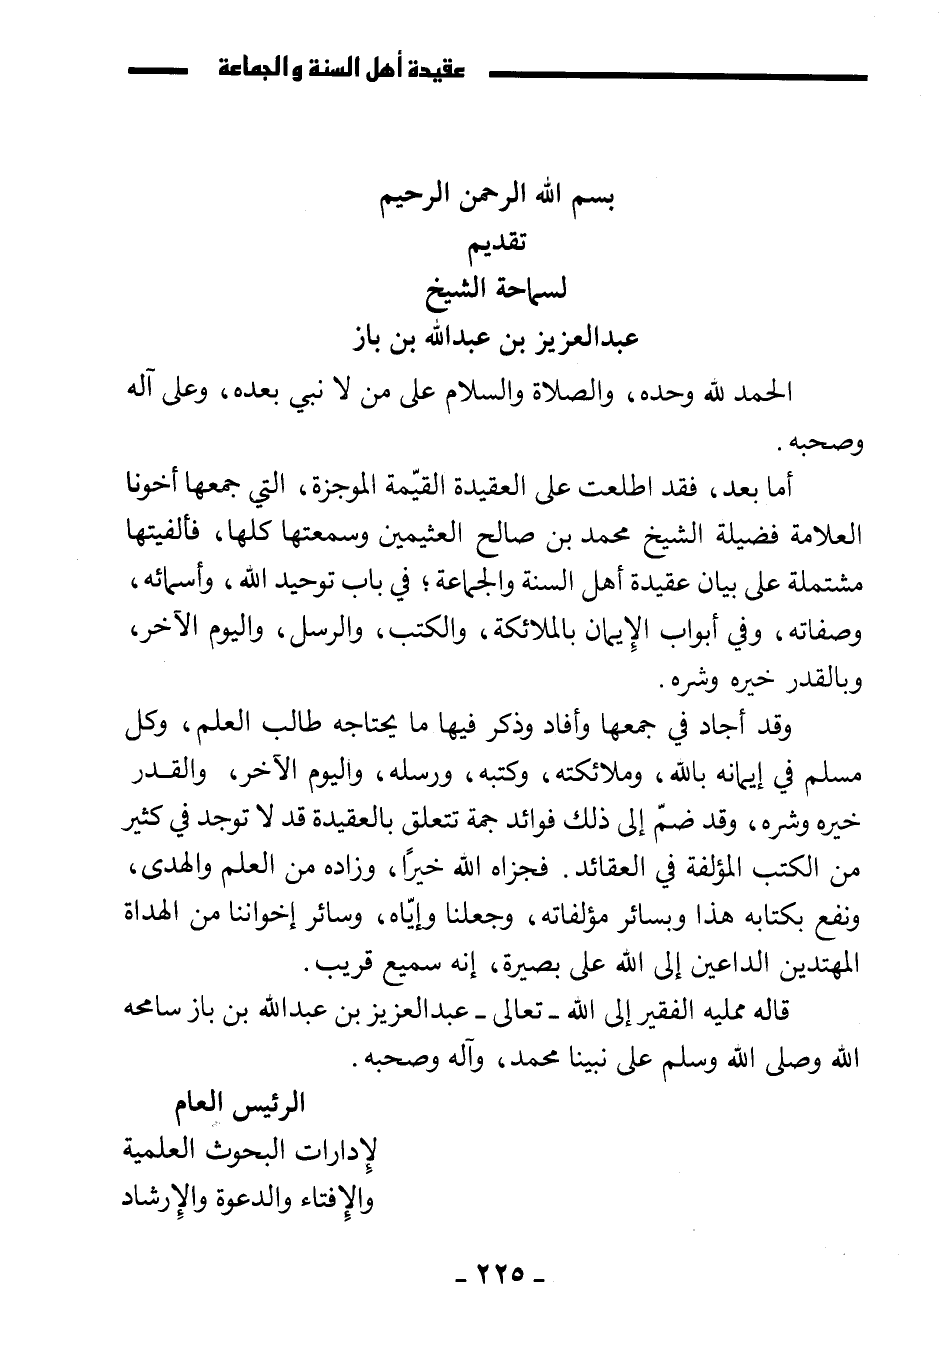 عقيدة أهل السنة والجماعة
بسم الله الرحمن الرحيم
تقديم
لسماحة الشيخ
عبدالعزيز بن عبدالله بن باز
الحمد لله وحده، والصلاة والسلام على من لا نبي بعده، وعلى آله
وصحبه.
أما بعد، فقد اطلعت على العقيدة القيّمة الموجزة، التي جمعها أخونا
العلامة فضيلة الشيخ محمد بن صالح العثيمين وسمعتها كلها، فألفيتها
مشتملة على بيان عقيدة أهل السنة والجماعة؛ في باب توحيد الله، وأسمائه،
وصفاته، وفي أبواب الإيمان بالملائكة، والكتب، والرسل، واليوم الآخر،
وبالقدر خيره وشره.
وقد أجاد في جمعها وأفاد وذكر فيها ما يحتاجه طالب العلم، وكل
مسلم في إيمانه بالله، وملائكته، وكتبه، ورسله، واليوم الآخر، والقدر
خيره وشره، وقد ضمّ إلى ذلك فوائد جمة تتعلق بالعقيدة قد لا توجد في كثير
من الكتب المؤلفة في العقائد. فجزاه الله خيراً، وزاده من العلم والهدى،
ونفع بكتابه هذا وبسائر مؤلفاته، وجعلنا وإيّاه، وسائر إخواننا من الهداة
المهتدين الداعين إلى الله على بصيرة، إنه سميع قريب.
قاله ممليه الفقير إلى الله ـ تعالى ـ عبدالعزيز بن عبدالله بن باز سامحه
الله وصلى الله وسلم على نبينا محمد، وآله وصحبه.
الرئيس العام
لإدارات البحوث العلمية
والإفتاء والدعوة والإرشاد
ـ ٢٢٥ ـ